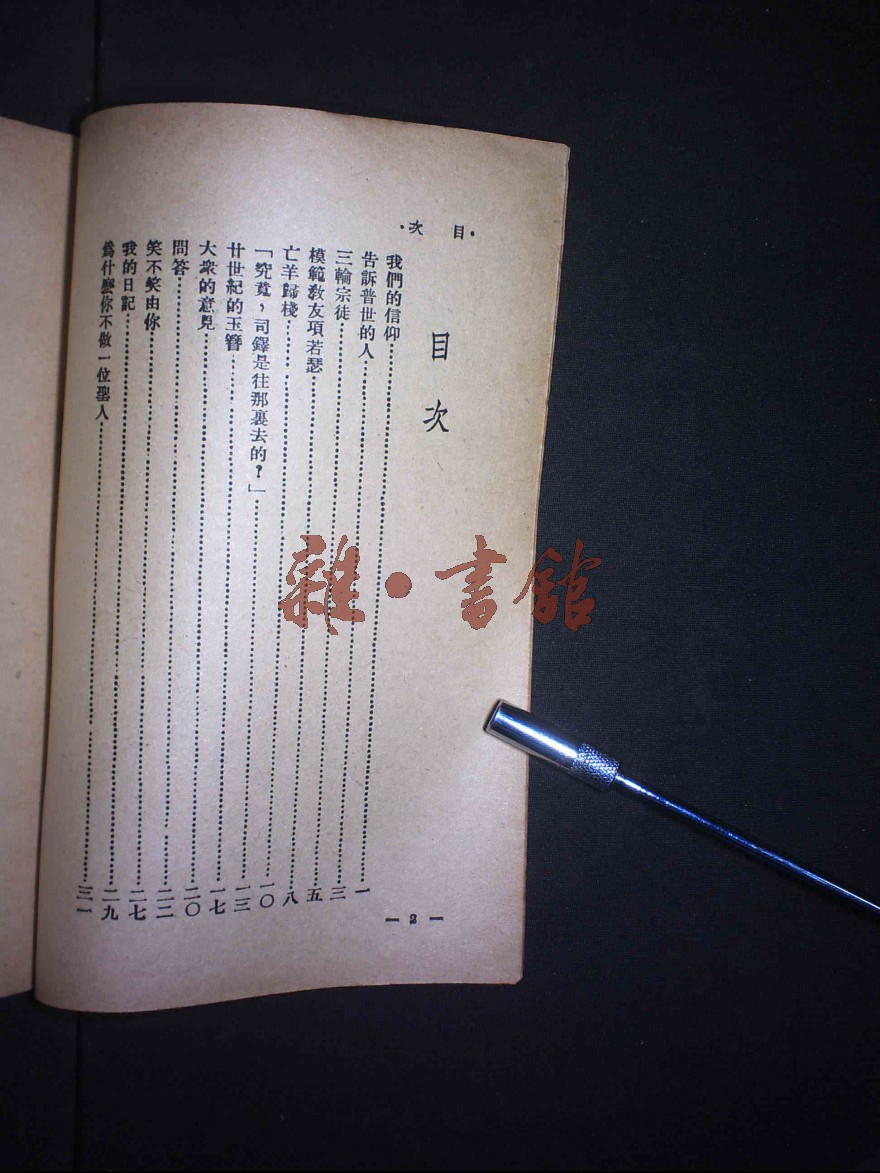 ·目次·
目次
我們的信仰……一
告訴普世的人……三
三輪宗徒……五
模範教友項若瑟……八
亡羊歸棧……一〇
「究竟，司鐸是往那裏去的？」……一三
廿世紀的玉簪……一七
大衆的意見……二〇
問答……二二
笑不笑由你……二七
我的日記……二九
爲什麽你不做一位聖人……三一
— 2 —
雜·書館